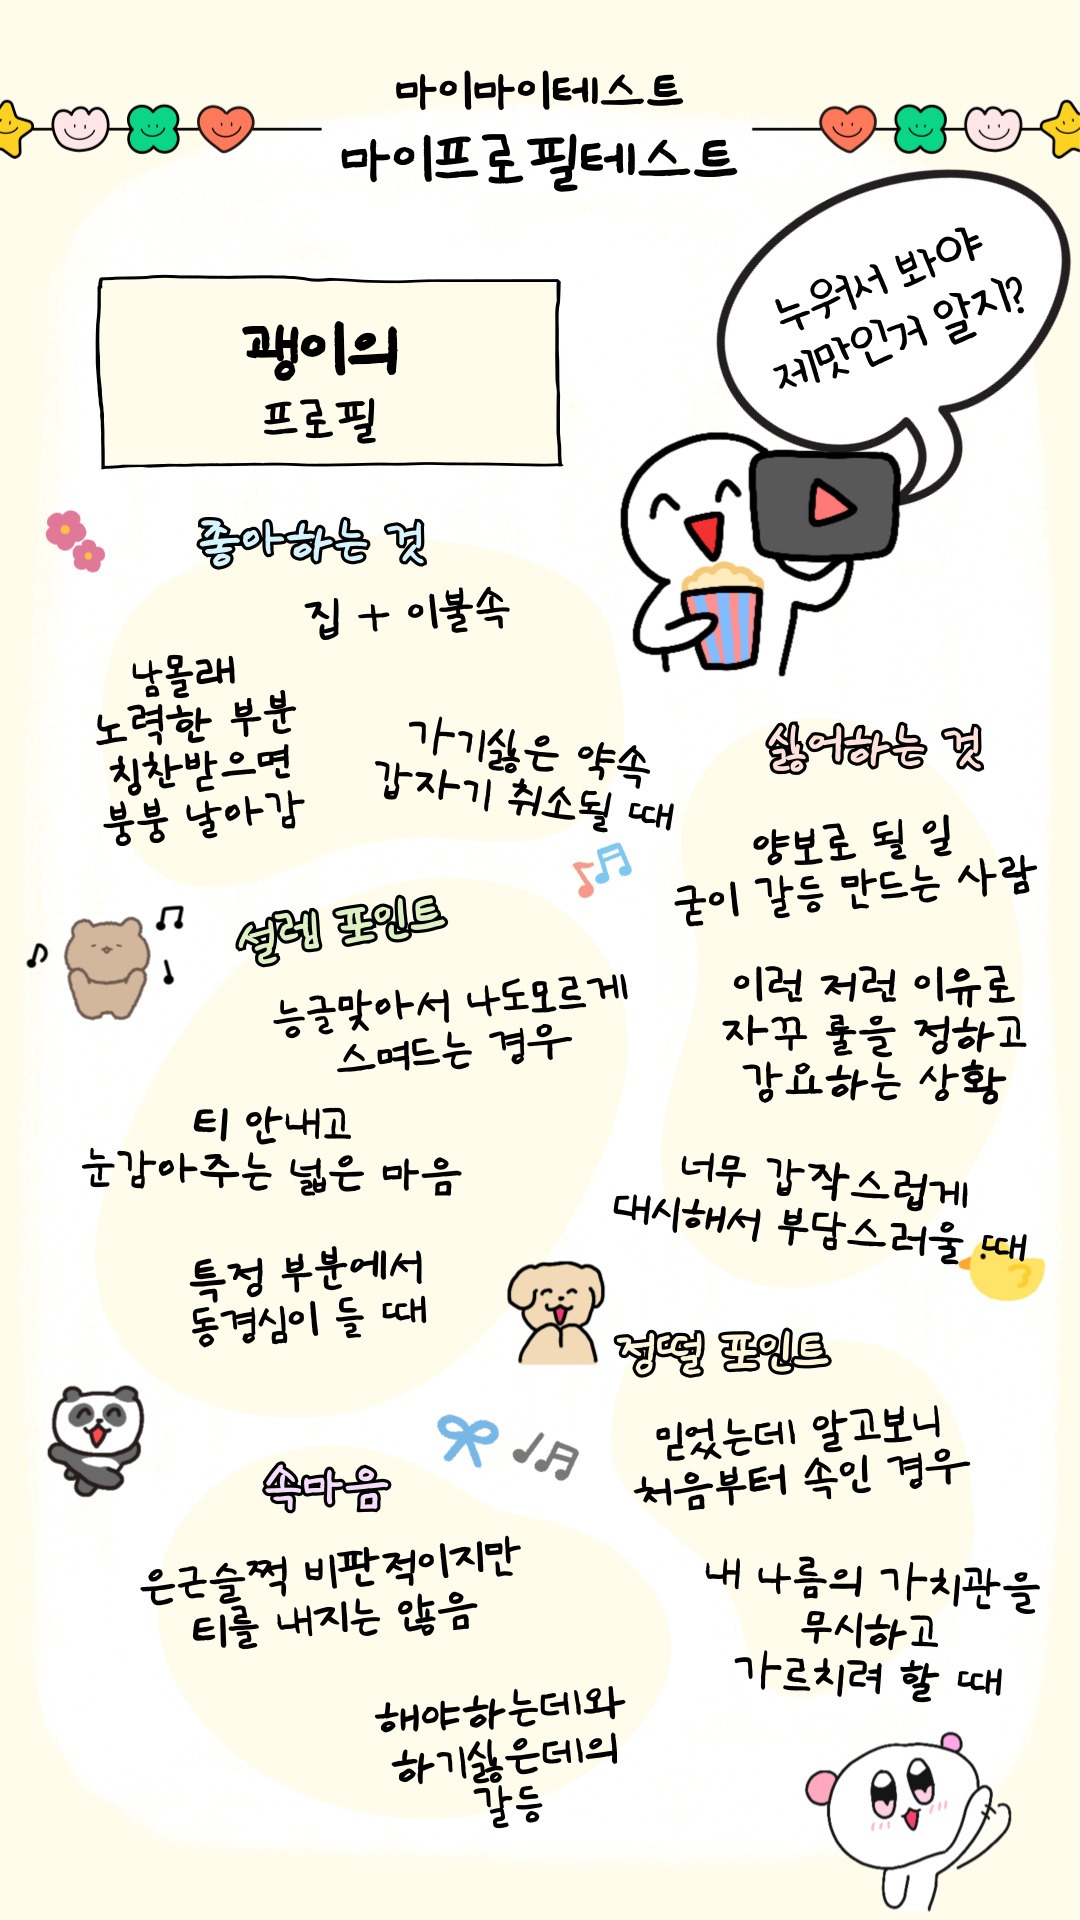 마이마이테스트
마이프로필테스트
누워서 봐야
제맛인거 알지?
괭이의
프로필
좋아하는 것
집 + 이불속
남몰래
노력한 부분
칭찬받으면
붕붕 날아감
가기싫은 약속
갑자기 취소될 때
싫어하는 것
양보로 될 일
굳이 갈등 만드는 사람
이런 저런 이유로
자꾸 룰을 정하고
강요하는 상황
너무 갑작스럽게
대시해서 부담스러울 때
설렘 포인트
능글맞아서 나도모르게
스며드는 경우
티 안내고
눈감아주는 넓은 마음
특정 부분에서
동경심이 들 때
정떨 포인트
믿었는데 알고보니
처음부터 속인 경우
내 나름의 가치관을
무시하고
가르치려 할 때
속마음
은근슬쩍 비판적이지만
티를 내지는 않음
해야하는데와
하기싫은데의
갈등